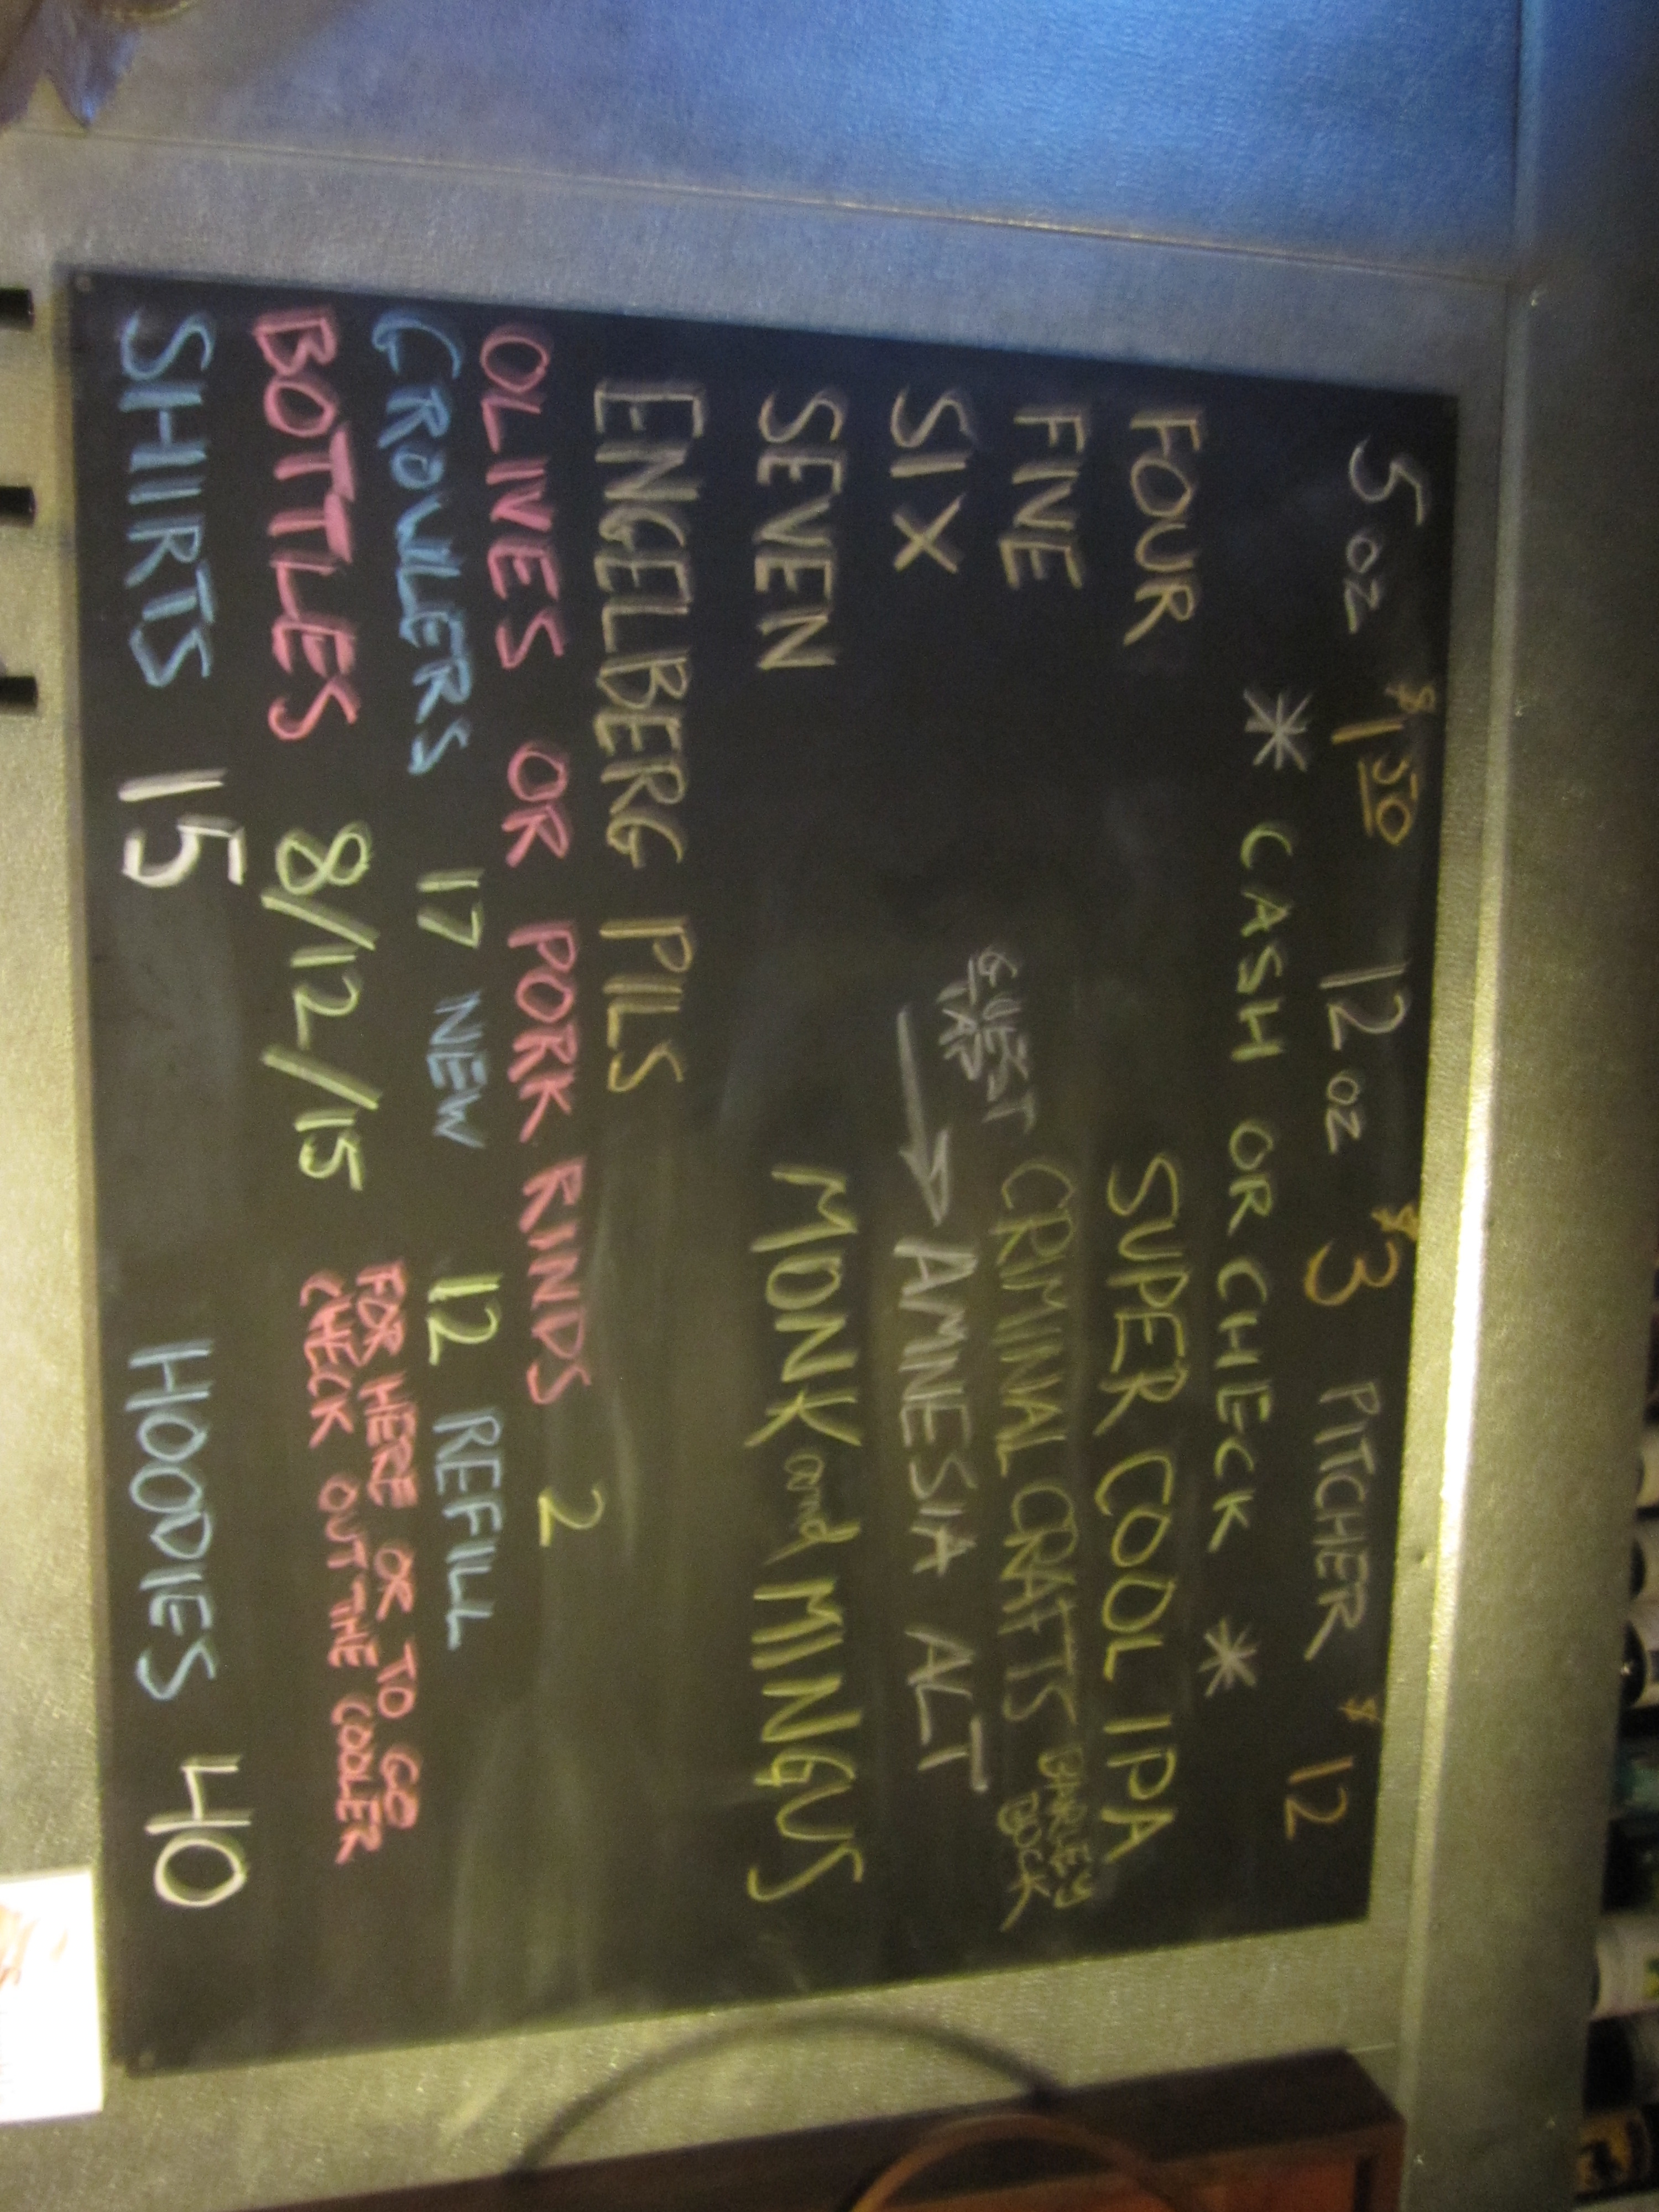 5 oz $1 50 12 oz $3 PITCHER $12
* CASH OR CHECK *
FOUR SUPER COOL IPA
FIVE CRIMINAL CRAFTS BARLEY BOCK
GUEST TAP
SIX → AMNESIA ALT
SEVEN MONK and MINGUS
ENGELBERG PILS
OLIVES OR PORK RINDS 2
GROWLERS 17 NEW 12 REFILL
BOTTLES 8/12/15 FOR HERE OR TO GO
CHECK OUT THE COOLER
SHIRTS 15 HOODIES 40